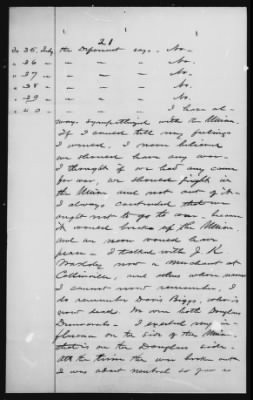 21
To 35. Inty the Deponent says - No -
" 36 - - - - No.
" 37 - - - - No.
" 38 - - - - No.
" 39 - - - - No.
" 40 - - - - I have al-
ways sympathized with the Union.
If I could tell my feelings
I would. I never believed
we should have any war.
I thought if we had any cause
for war, we should fight in
the Union and not out of it.
I always contended that we
ought not to go to war - because
it would break up the Union
and we never would have
peace - I talked with J. K.
now a merchant at
Collinsville, and others whose names
I cannot now remember. I
do remember Davis Biggs, who is
now dead. We were both Douglas
Democrats - I exerted my in-
fluence on the side of the Union.
that is on the Douglas side.
At the time the war broke out
I was about neutral so far as